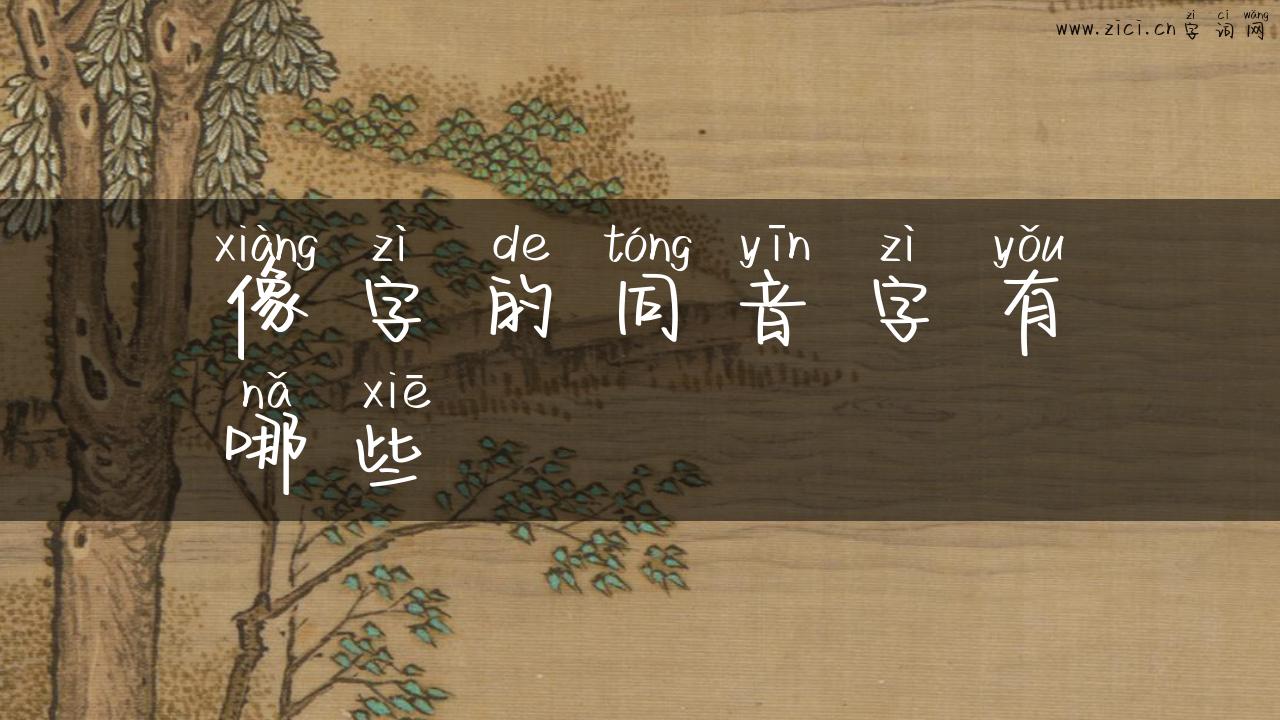 zì cí wǎng
www.zici.cn 字 词 网
xiàng zì de tóng yīn zì yǒu
像 字 的 同 音 字 有
nǎ xiē
哪 些